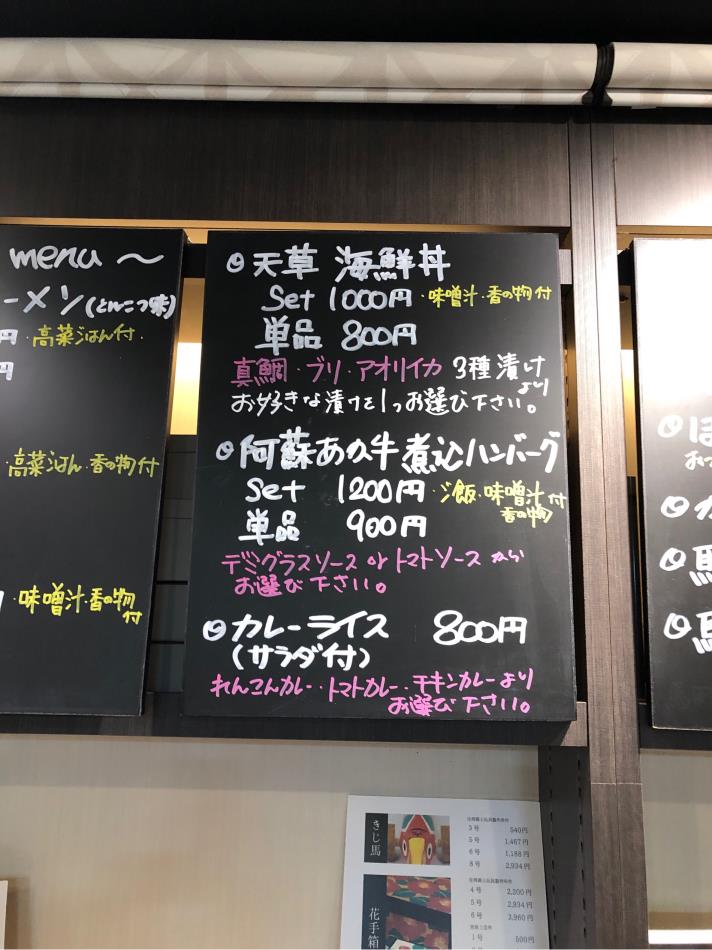 menu ～
ーメン(とんこつ味)
円・高菜ごはん付・
円
高菜ごはん・香の物付
・味噌汁・香の物付
天草 海鮮丼
Set 1000円・味噌汁・香の物付
単品 800円
真鯛・ブリ・アオリイカ 3種漬けより
お好きな漬けを1つお選び下さい。
阿蘇あか牛煮込ハンバーグ
Set 1200円・ご飯・味噌汁付
香の物
単品 900円
デミグラスソース or トマトソースから
お選び下さい。
カレーライス 800円
(サラダ付)
れんこんカレー・トマトカレー・チキンカレーより
お選び下さい。
ほ
おつ
カ
馬
馬
きじ馬
3号 540円
5号 1,467円
6号 1,188円
8号 2,934円
花手箱
4号 2,300円
5号 2,934円
6号 3,960円
1号 500円